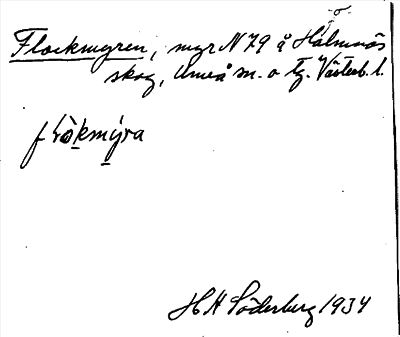 Flockmyren, myr N 79 å Holmnäs
skog, Umeå sn. o tg. Västerb. l.
flòkmýra
H H Söderberg 1934